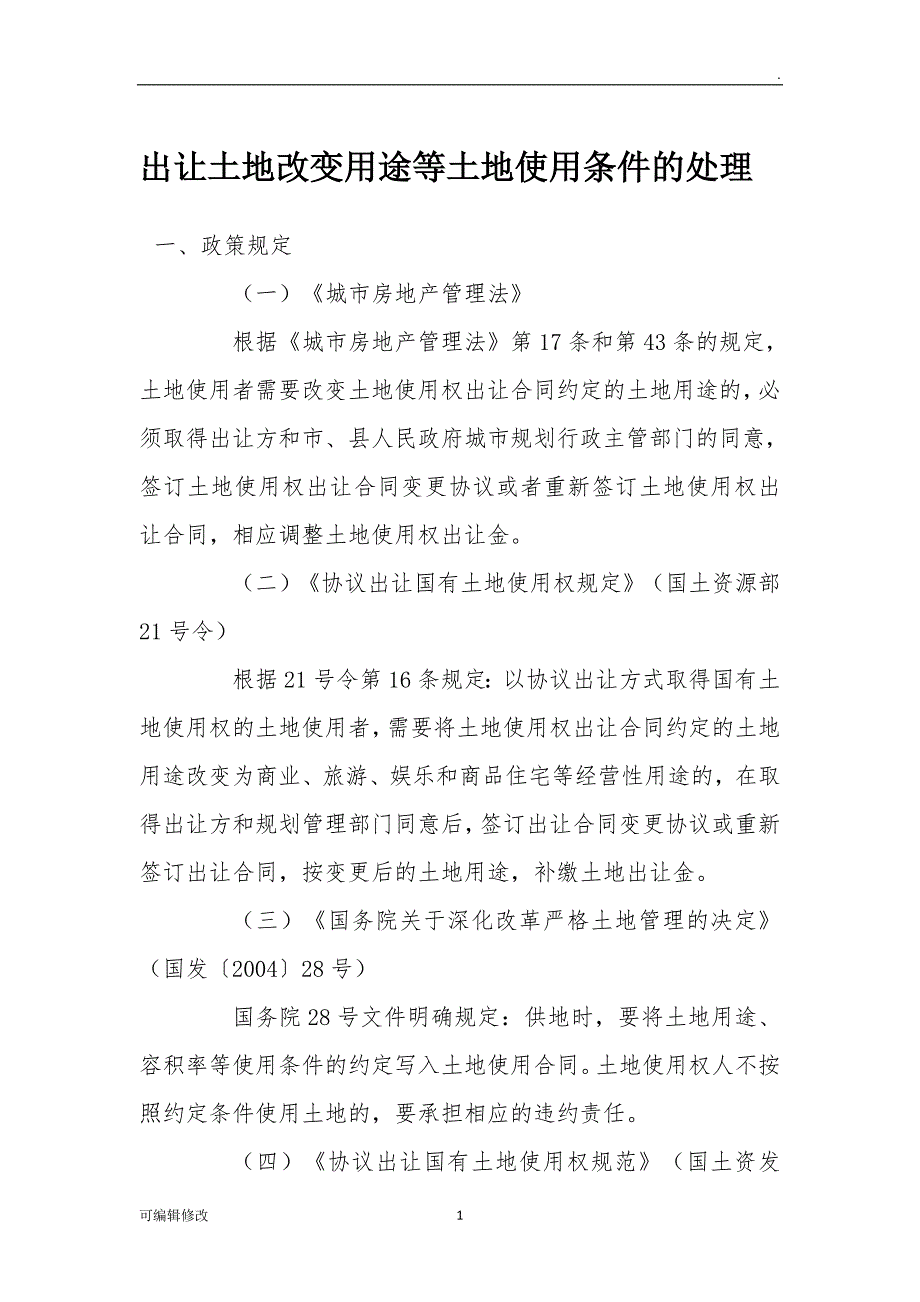 .
出让土地改变用途等土地使用条件的处理
一、政策规定
（一）《城市房地产管理法》
根据《城市房地产管理法》第17条和第43条的规定，
土地使用者需要改变土地使用权出让合同约定的土地用途的，必
须取得出让方和市、县人民政府城市规划行政主管部门的同意，
签订土地使用权出让合同变更协议或者重新签订土地使用权出
让合同，相应调整土地使用权出让金。
（二）《协议出让国有土地使用权规定》（国土资源部
21号令）
根据21号令第16条规定：以协议出让方式取得国有土
地使用权的土地使用者，需要将土地使用权出让合同约定的土地
用途改变为商业、旅游、娱乐和商品住宅等经营性用途的，在取
得出让方和规划管理部门同意后，签订出让合同变更协议或重新
签订出让合同，按变更后的土地用途，补缴土地出让金。
（三）《国务院关于深化改革严格土地管理的决定》
（国发〔2004〕28号）
国务院28号文件明确规定：供地时，要将土地用途、
容积率等使用条件的约定写入土地使用合同。土地使用权人不按
照约定条件使用土地的，要承担相应的违约责任。
（四）《协议出让国有土地使用权规范》（国土资发
可编辑修改
1